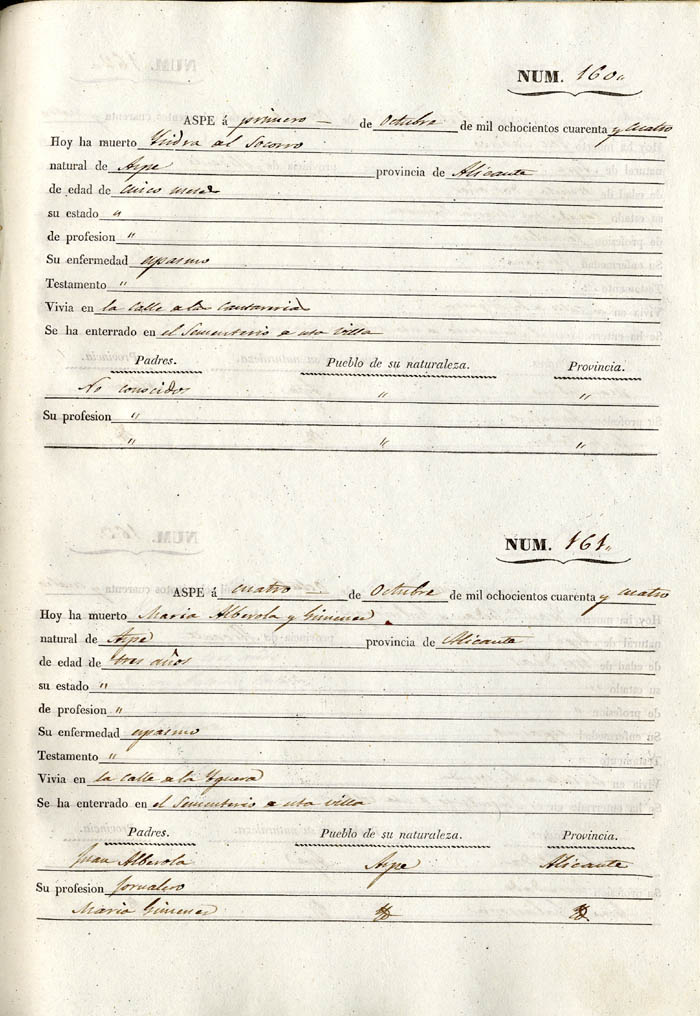 NUM. 160.
ASPE á primero — de Octubre de mil ochocientos cuarenta y cuatro
Hoy ha muerto Ysidra del Socorro
natural de Aspe provincia de Alicante
de edad de cinco meses
su estado "
de profesion "
Su enfermedad espasmo
Testamento "
Vivia en la Calle de la
Se ha enterrado en el Sementerio de esta villa
Padres. Pueblo de su naturaleza. Provincia.
No conocidos " "
Su profesion "
" " "
NUM. 161.
ASPE á cuatro — de Octubre de mil ochocientos cuarenta y cuatro
Hoy ha muerto Maria Alberola y Gimenez
natural de Aspe provincia de Alicante
de edad de tres años
su estado "
de profesion "
Su enfermedad espasmo
Testamento "
Vivia en la Calle de la Yguera
Se ha enterrado en el Sementerio de esta villa
Padres. Pueblo de su naturaleza. Provincia.
Juan Alberola Aspe Alicante
Su profesion Jornalero
Maria Gimenez